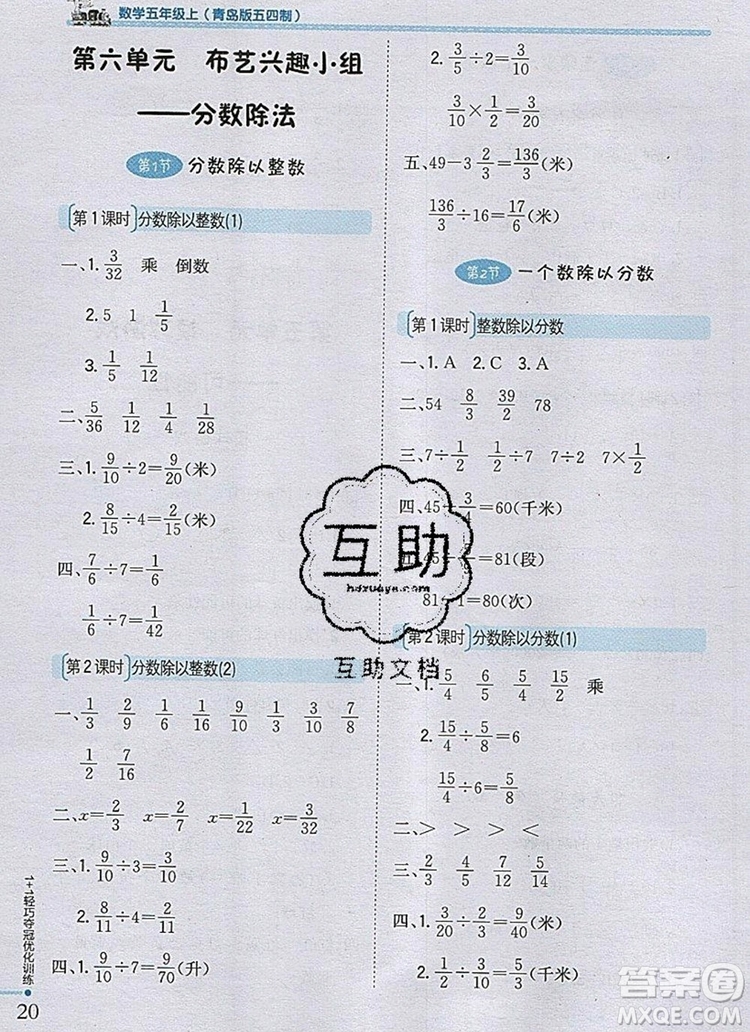 数学五年级上（青岛版五四制）
第六单元 布艺兴趣小组
——分数除法
第1节 分数除以整数
第1课时 分数除以整数(1)
一、1. 3/32 乘 倒数
2. 5 1 1/5
3. 1/5 1/12
二、5/36 1/12 1/4 1/28
三、1. 9/10÷2=9/20(米)
2. 8/15÷4=2/15(米)
四、7/6÷7=1/6
1/6÷7=1/42
第2课时 分数除以整数(2)
一、1/3 2/9 1/6 1/16 9/10 3/10 7/8
1/2 7/15
二、x=2/3 x=2/7 x=1/22 x=3/32
三、1. 9/10÷3=3/10
2. 8/11÷4=2/11
四、1. 9/10÷7=9/70(升)
1+1轻巧夺冠优化训练
20
2. 3/5÷2=3/10
3/10×1/2=3/20
五、49-3 2/3=136/3(米)
136/3÷16=17/6(米)
第2节 一个数除以分数
第1课时 整数除以分数
一、1. A 2. C 3. A
二、54 8/3 39/2 78
三、7÷1/2 1/2÷7 7÷1/2 7×1/2
四、45÷3/4=60(千米)
=81(段)
81-1=80(次)
第2课时 分数除以分数(1)
一、1. 5/4 6/5 5/4 15/2 乘
2. 15/4÷5/8=6
15/4÷6=5/8
二、> > > <
三、2/3 3/4 9/10 5/6
四、1. 3/20÷2/3=9/40(米)
2. 1/3÷3/5=5/9(千米)
互助
hdzuoye.com
互助文档
答案圈
MXQE.COM